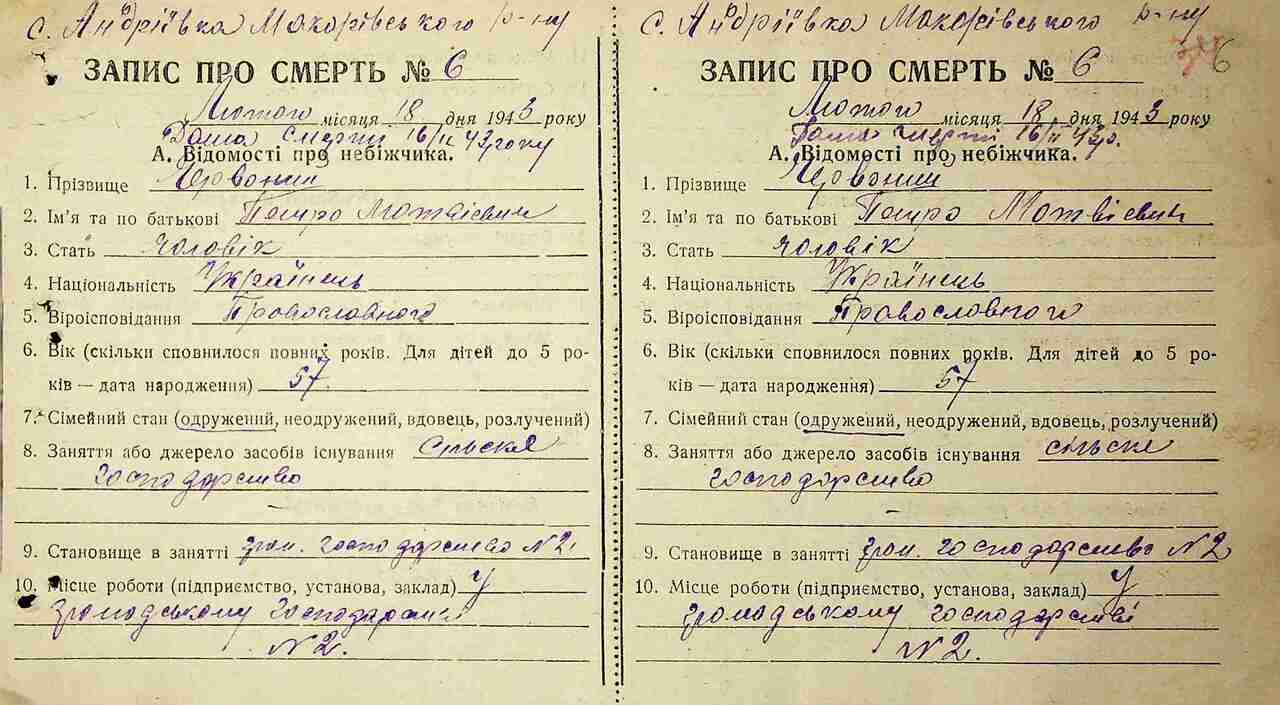 с. Андріївка Макарівського р-ну
ЗАПИС ПРО СМЕРТЬ № 6
Лютого місяця 18 дня 1943 року
Дата смерти 16/II 43 року
А. Відомості про небіжчика.
1. Прізвище Червоний
2. Ім'я та по батькові Петро Матвієвич
3. Стать чоловік
4. Національність Українець
5. Віроісповідання Православного
6. Вік (скільки сповнилося повних років. Для дітей до 5 ро-
ків — дата народження) 57
7. Сімейний стан (одружений, неодружений, вдовець, розлучений)
8. Заняття або джерело засобів існування Сільске
господарство
-
9. Становище в занятті гром. господарство N2.
10. Місце роботи (підприємство, установа, заклад) У
громадському господарстві
N2.
с. Андріївка Макарівського р-ну
6
ЗАПИС ПРО СМЕРТЬ № 6
Лютого місяця 18 дня 1943 року
Дата смерті 16/II 43 р.
А. Відомості про небіжчика.
1. Прізвище Червоний
2. Ім'я та по батькові Петро Матвієвич
3. Стать чоловік
4. Національність Українець
5. Віроісповідання Православного
6. Вік (скільки сповнилося повних років. Для дітей до 5 ро-
ків — дата народження) 57
7. Сімейний стан (одружений, неодружений, вдовець, розлучений)
8. Заняття або джерело засобів існування сільске
господарство
-
9. Становище в занятті гром. господарство N2
10. Місце роботи (підприємство, установа, заклад) У
громадському господарстві
N2.